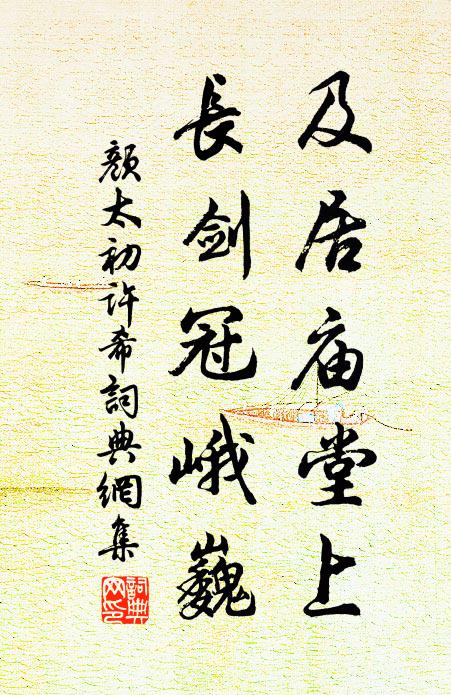 及居庙堂上
長剑冠峨巍
顏太初许希詞典網集
詞典